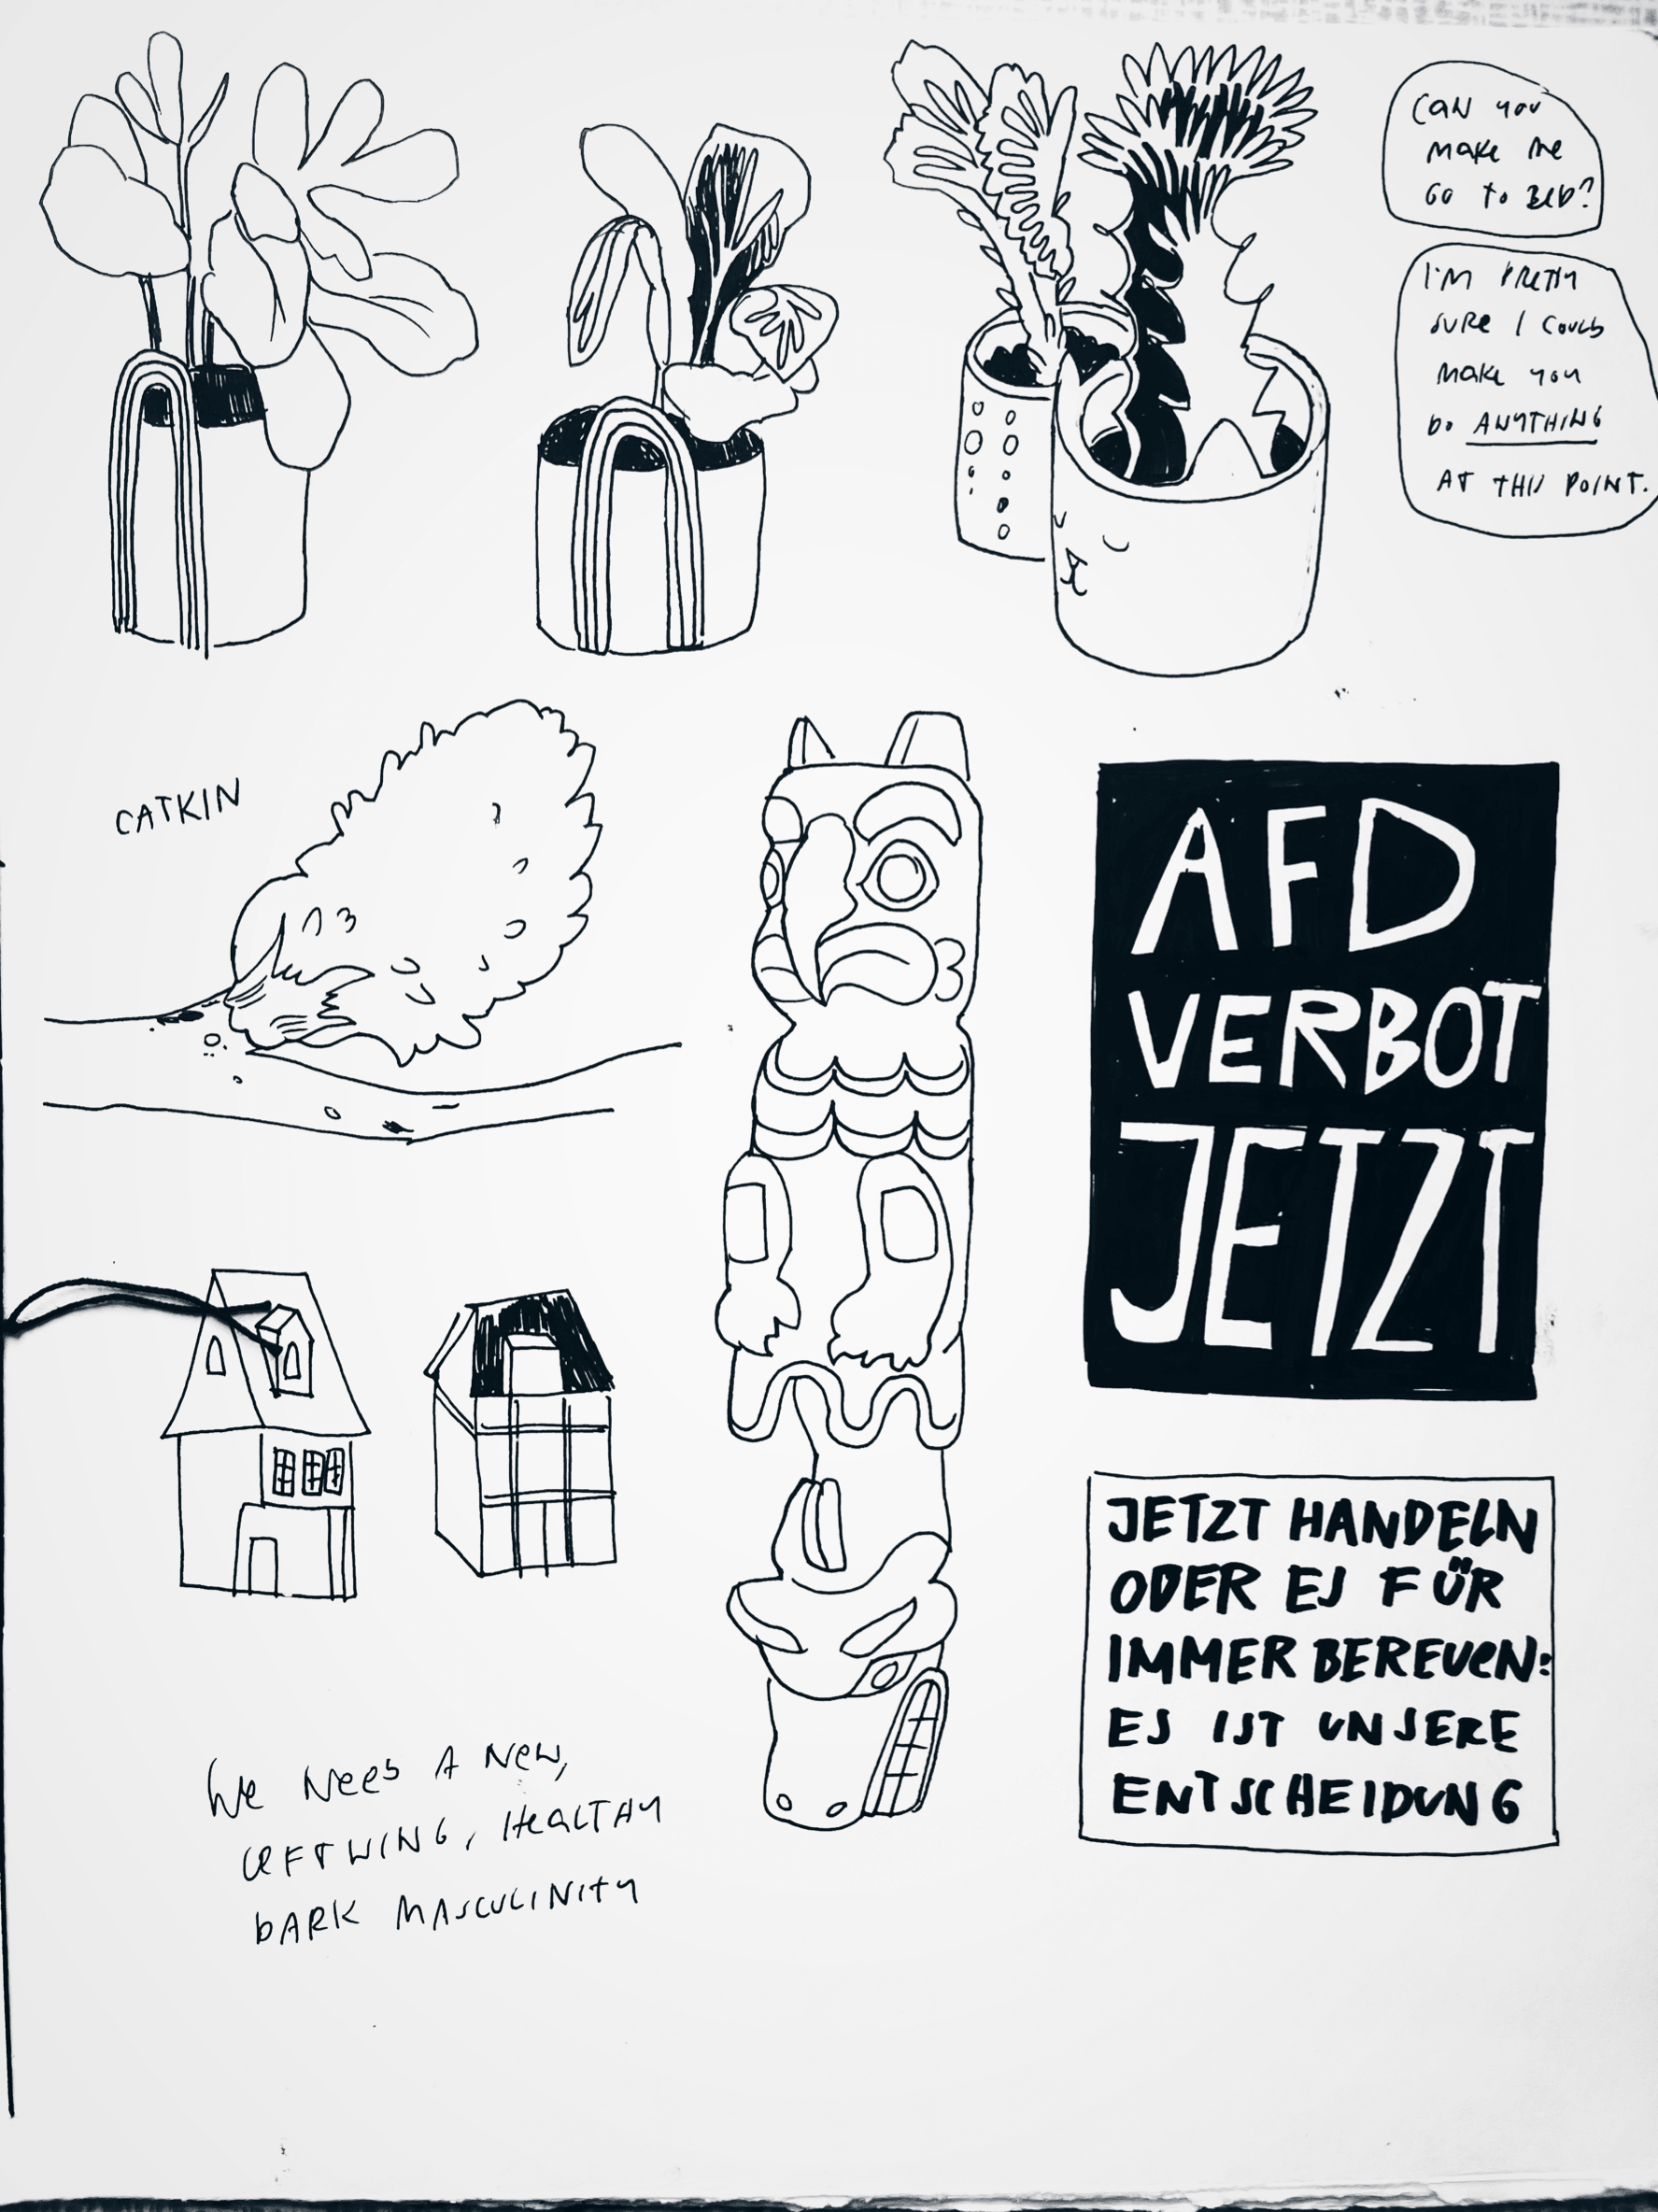 CAN YOU
MAKE ME
GO TO BED?
I'M PRETTY
SURE I COULD
MAKE YOU
DO ANYTHING
AT THIS POINT.
CATKIN
AFD
VERBOT
JETZT
JETZT HANDELN
ODER ES FÜR
IMMER BEREUEN:
ES IST UNSERE
ENTSCHEIDUNG
We NeeD A New,
LEFTWING, HeaLTHY
DARK MASCULINITY